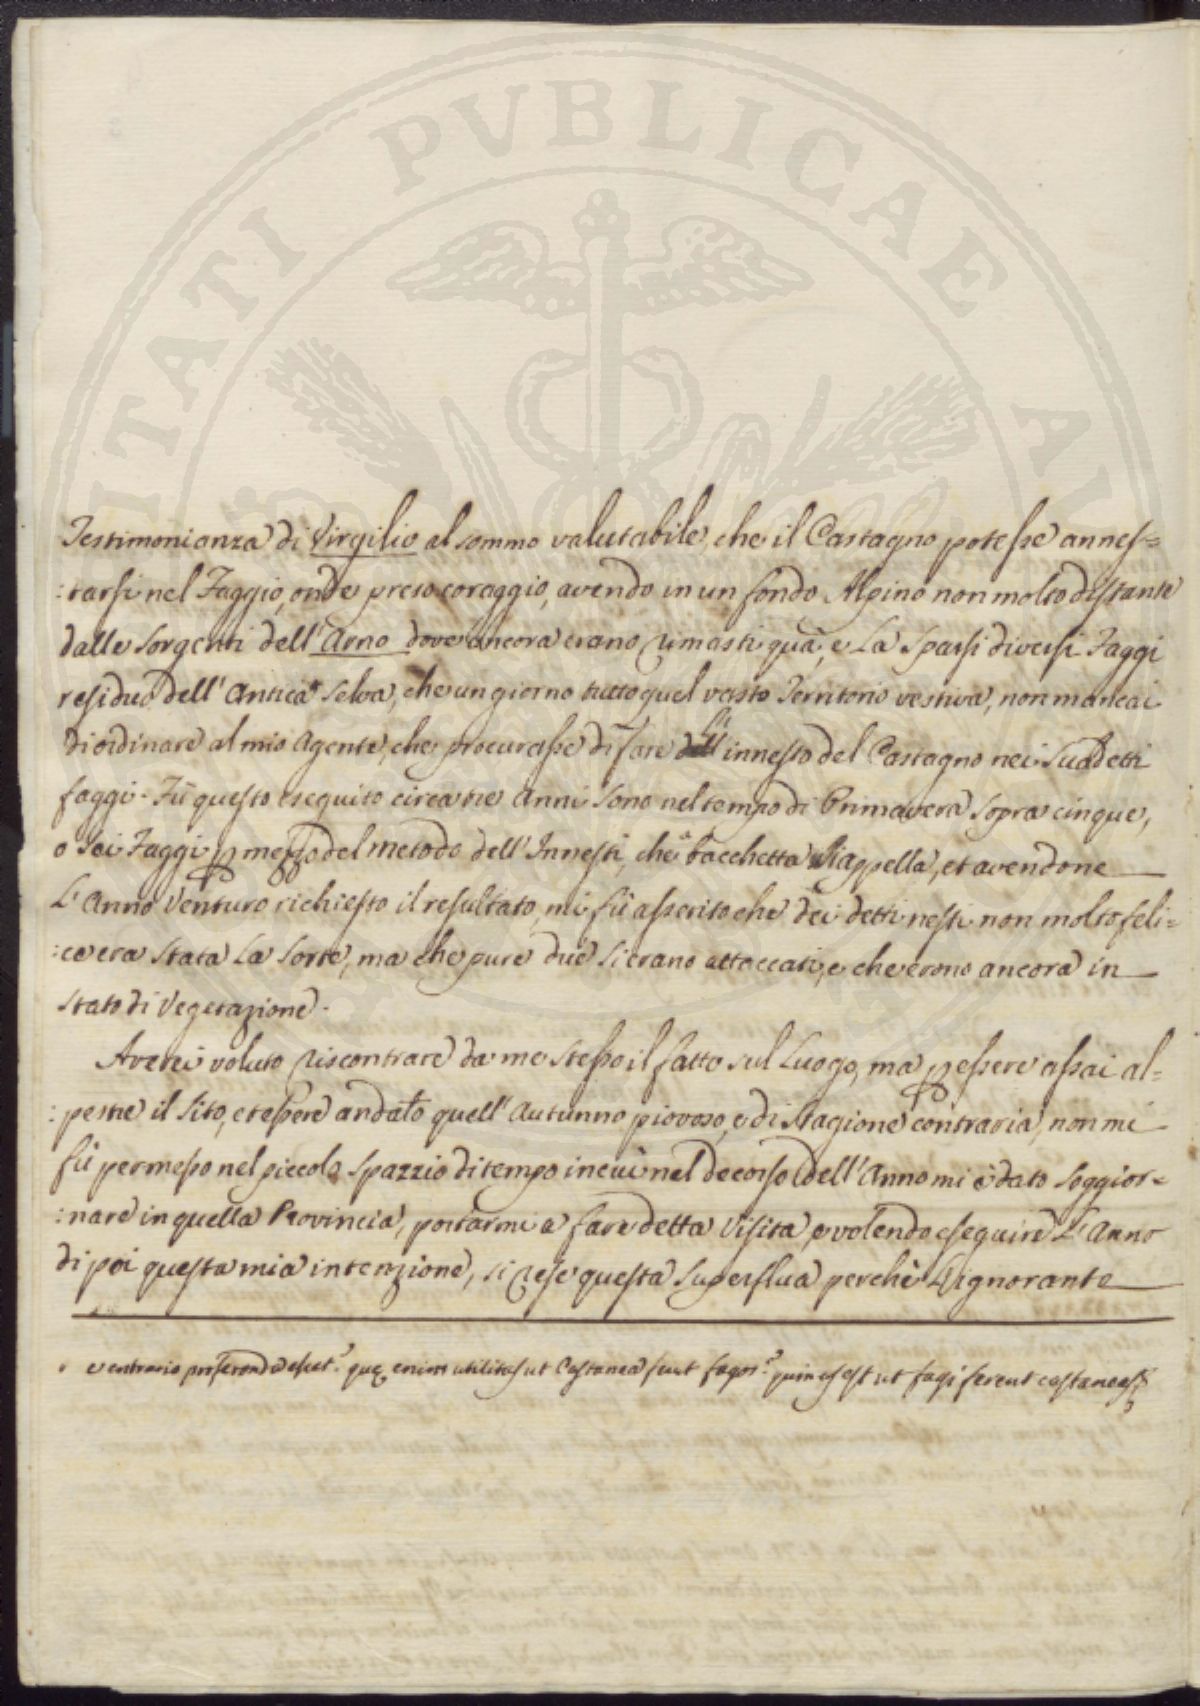 VTILITATI PVBLICAE AV
Testimonianza di Virgilio al sommo valutabile, che il Castagno potesse annes=
:tarsi nel Faggio, onde preso coraggio, avendo in un fondo Alpino non molto distante
dalle sorgenti dell'Arno dove ancora erano rimasti quà, e là sparsi diversi Faggi
residuo dell'Antica Selva, che un giorno tutto quel vasto Territorio vestiva, non mancai
di ordinare al mio Agente, che procurasse di fare l'innesto del Castagno nei Suddetti
faggi. Fù questo eseguito circa tre Anni sono nel tempo di Primavera sopra cinque,
o Sei Faggi p mezzo del metodo dell'Innesti, che a bacchetta si appella, et avendone
L'Anno Venturo richiesto il resultato, mi fù asserito che dei detti nesti non molto feli=
:ce era stata La Sorte, ma che pure due si erano attaccati, e che erono ancora in
stato di Vegetazione.
Averei voluto riscontrare da me stesso il fatto sul Luogo, ma p essere assai al=
:pestre il Sito, et essere andato quell'Autunno piovoso, e di stagione contraria, non mi
fù permesso nel piccolo spazzio di tempo in cui nel decorso dell'Anno mi è dato Soggior=
:nare in quella Provincia, portarmi a fare detta Visita, e volendo eseguire L'Anno
di poi questa mia intenzione, si rese questa Superflua perchè L'ignorante
e contrario proferenda esset? quę enim utilitas ut Castanea ferat fagos? quin es est ut fagi ferent castaneas;